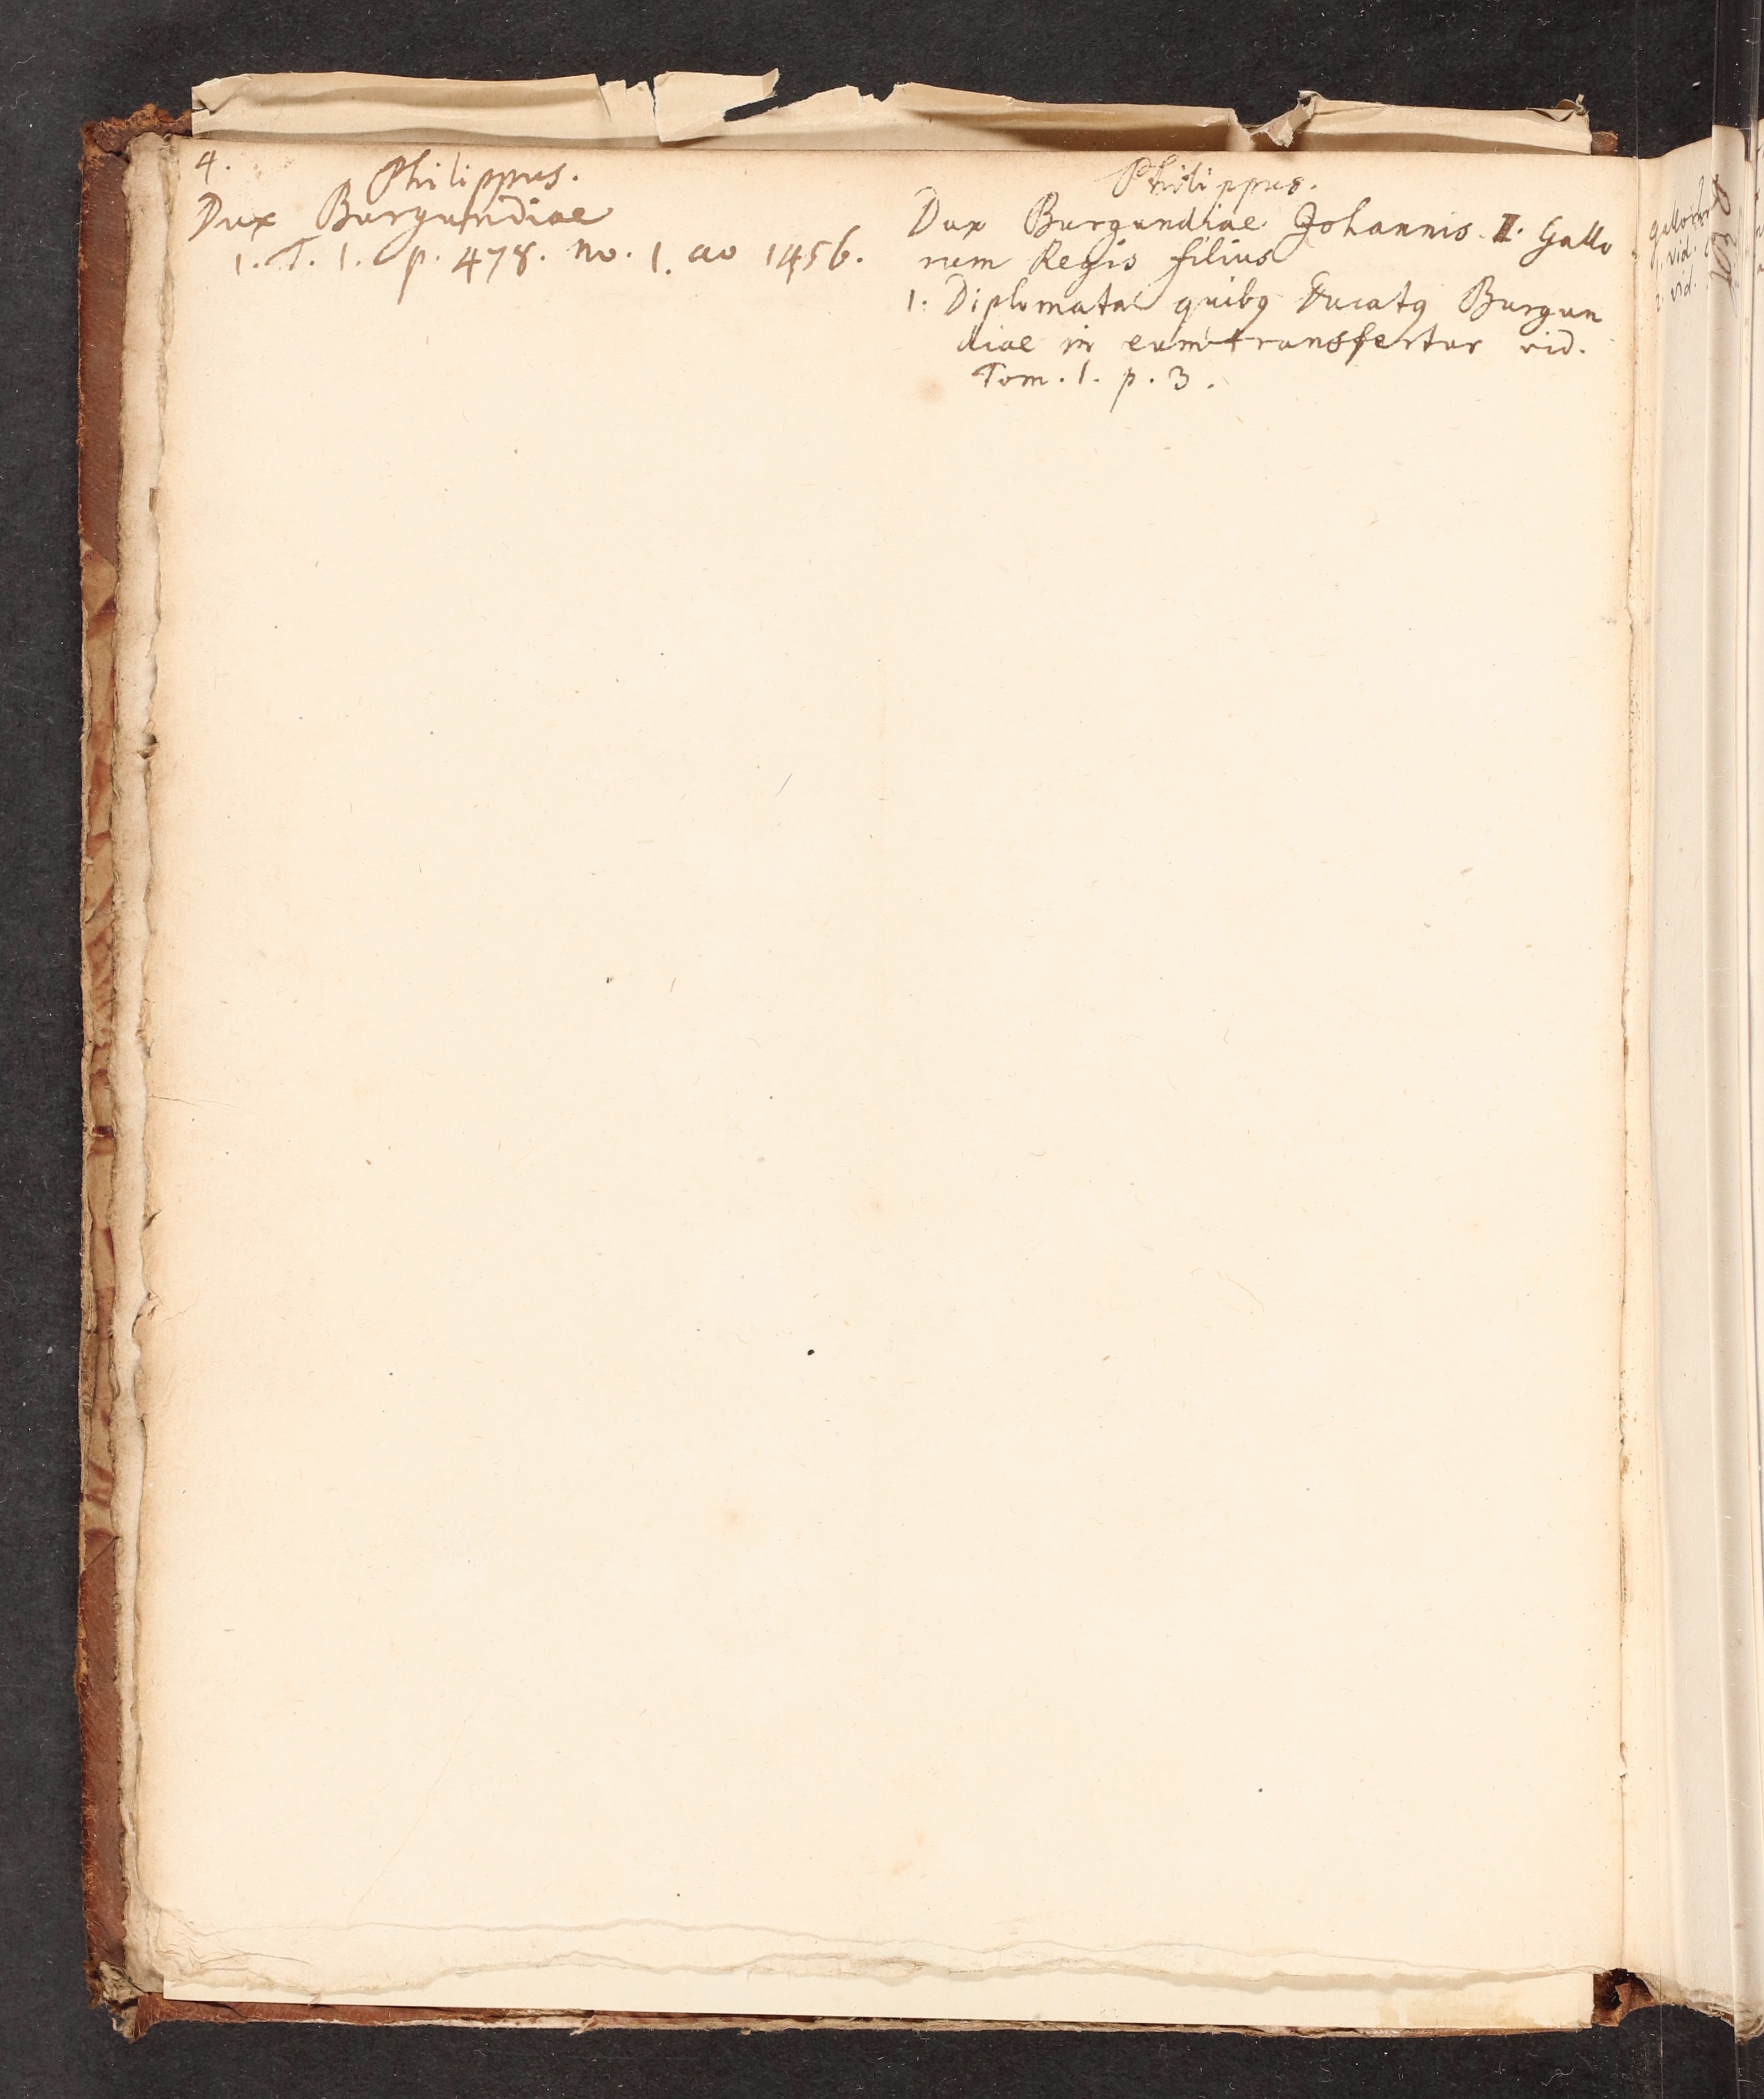 4.
Philippus.
Dux Burgundiae
1. T. 1. p. 478. no. 1. ao 1456.
Philippus.
Dux Burgundiae Johannis II. Gallo
rum Regis filius
1. Diplomata quibꝯ Ducatꝯ Burgun
diae in eum transfertur vid.
Tom. 1. p. 3.
vid.
vid.